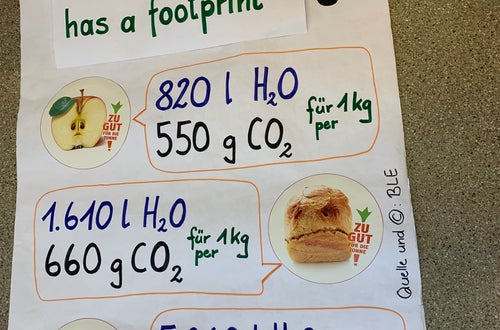 has a footprint
820 l H₂O
550 g CO₂
für 1 kg
per
ZU
GUT
FÜR DIE
TONNE
!
1.610 l H₂O
660 g CO₂
für 1 kg
per
ZU
GUT
FÜR DIE
TONNE
!
Quelle und ©: BLE